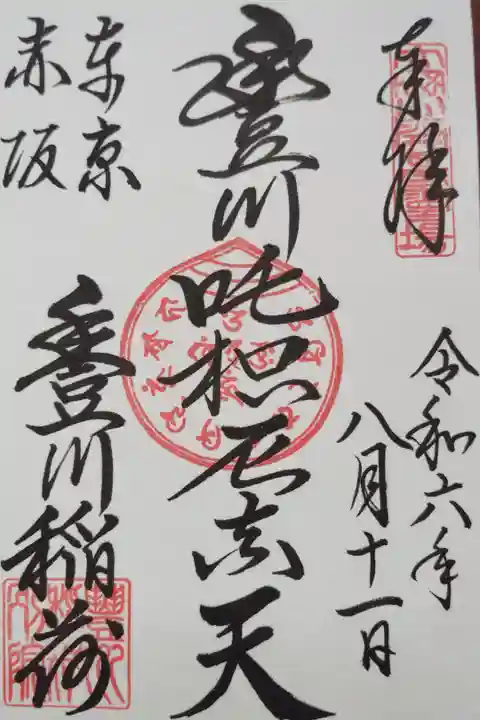 奉拝
令和六年
八月十一日
豊川吒枳尼真天
東京
赤坂
豊川稲荷